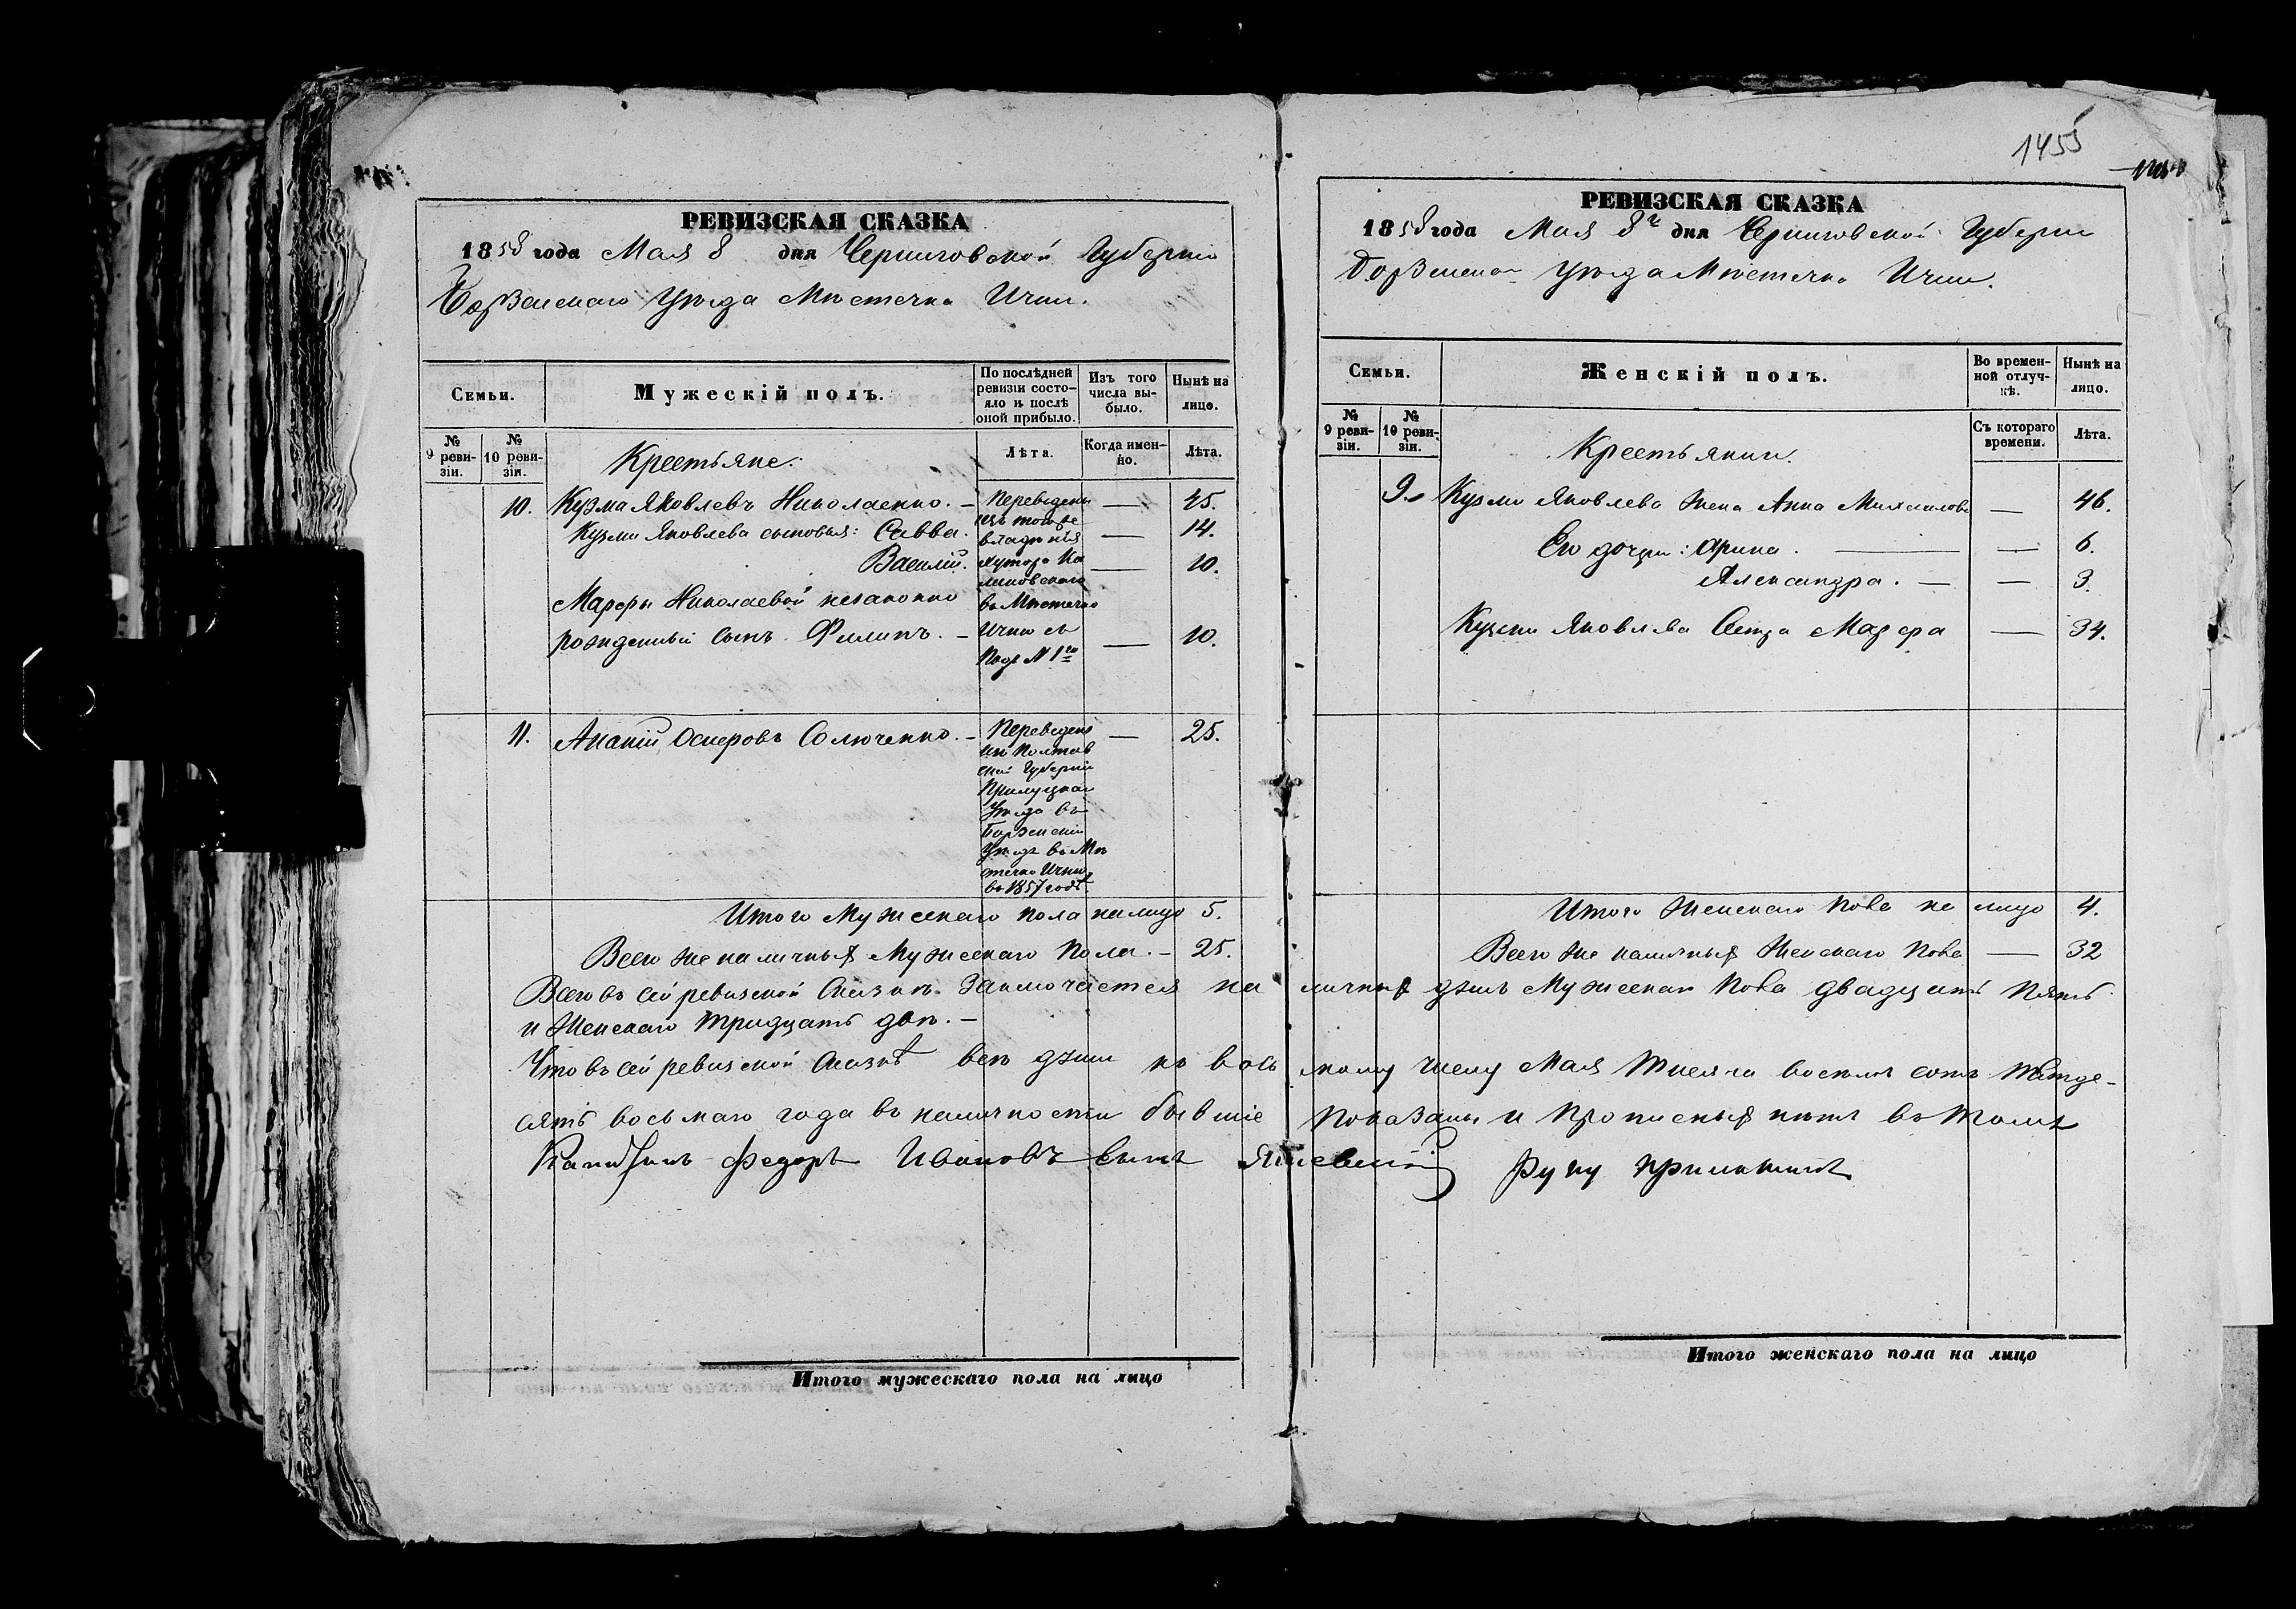 РЕВИЗСКАЯ СКАЗКА
1858 года Мая 8 дня Черниговской Губерніи
Борзенскаго Уѣзда Мѣстечка Ични.
Семьи.
Мужескій полъ.
По послѣдней ревизіи состояло и послѣ оной прибыло.
Изъ того числа выбыло.
Нынѣ на лицо.
№ 9 ревизіи.
№ 10 ревизіи.
Лѣта.
Когда именно.
Лѣта.
Крестьяне:
10. Кузма Яковлевъ Николаенко. — 45.
Кузми Яковлева сыновья: Савва. — 14.
Василій. — 10.
Марфы Николаевой незаконно
рожденный сынъ Филипъ. — 10.
Переведены
изъ того же
владѣнія
хутора
въ Мѣстечко
Ичню съ
Подъ № 1го
11. Ананій Осиповъ Солюченко. — 25.
Переведенъ
изъ Полтав
ской Губерніи
Прилуцкаго
Уѣзда въ
Борзенскій
Уѣздъ въ Мѣ
стечко Ичню
въ 1857 годѣ
Итого Мужескаго пола на лицо 5.
Всего же наличныхъ Мужескаго Пола. — 25.
Итого мужескаго пола на лицо
1455
РЕВИЗСКАЯ СКАЗКА
1858 года Мая 8го дня Черниговской Губерніи
Борзенскаго Уѣзда Мѣстечка Ични.
Семьи.
Женскій полъ.
Во временной отлучкѣ.
Нынѣ на лицо.
№ 9 ревизіи.
№ 10 ревизіи.
Съ котораго времени.
Лѣта.
Крестьянки.
9. Кузми Яковлева Жена Анна Михайлова — 46.
Его дочери: Арина. — 6.
Александра. — 3.
Кузми Яковлева Сестра Марфа — 34.
Итого Женскаго пола на лицо 4.
Всего же наличныхъ Женскаго пола — 32
Всего въ сей ревизской Сказкѣ Заключается наличныхъ душъ Мужескаго Пола двадцать Пять
и Женскаго Тридцать двѣ. —
Что въ сей ревизской Сказкѣ всѣ души къ восьмому числу Мая Тысяча восемь сотъ Пятде-
сять восьмаго года въ наличности бывшіе показаны и Прописныхъ нѣтъ въ томъ
Капитанъ Федоръ Ивановъ сынъ руку приложилъ
Итого женскаго пола на лицо